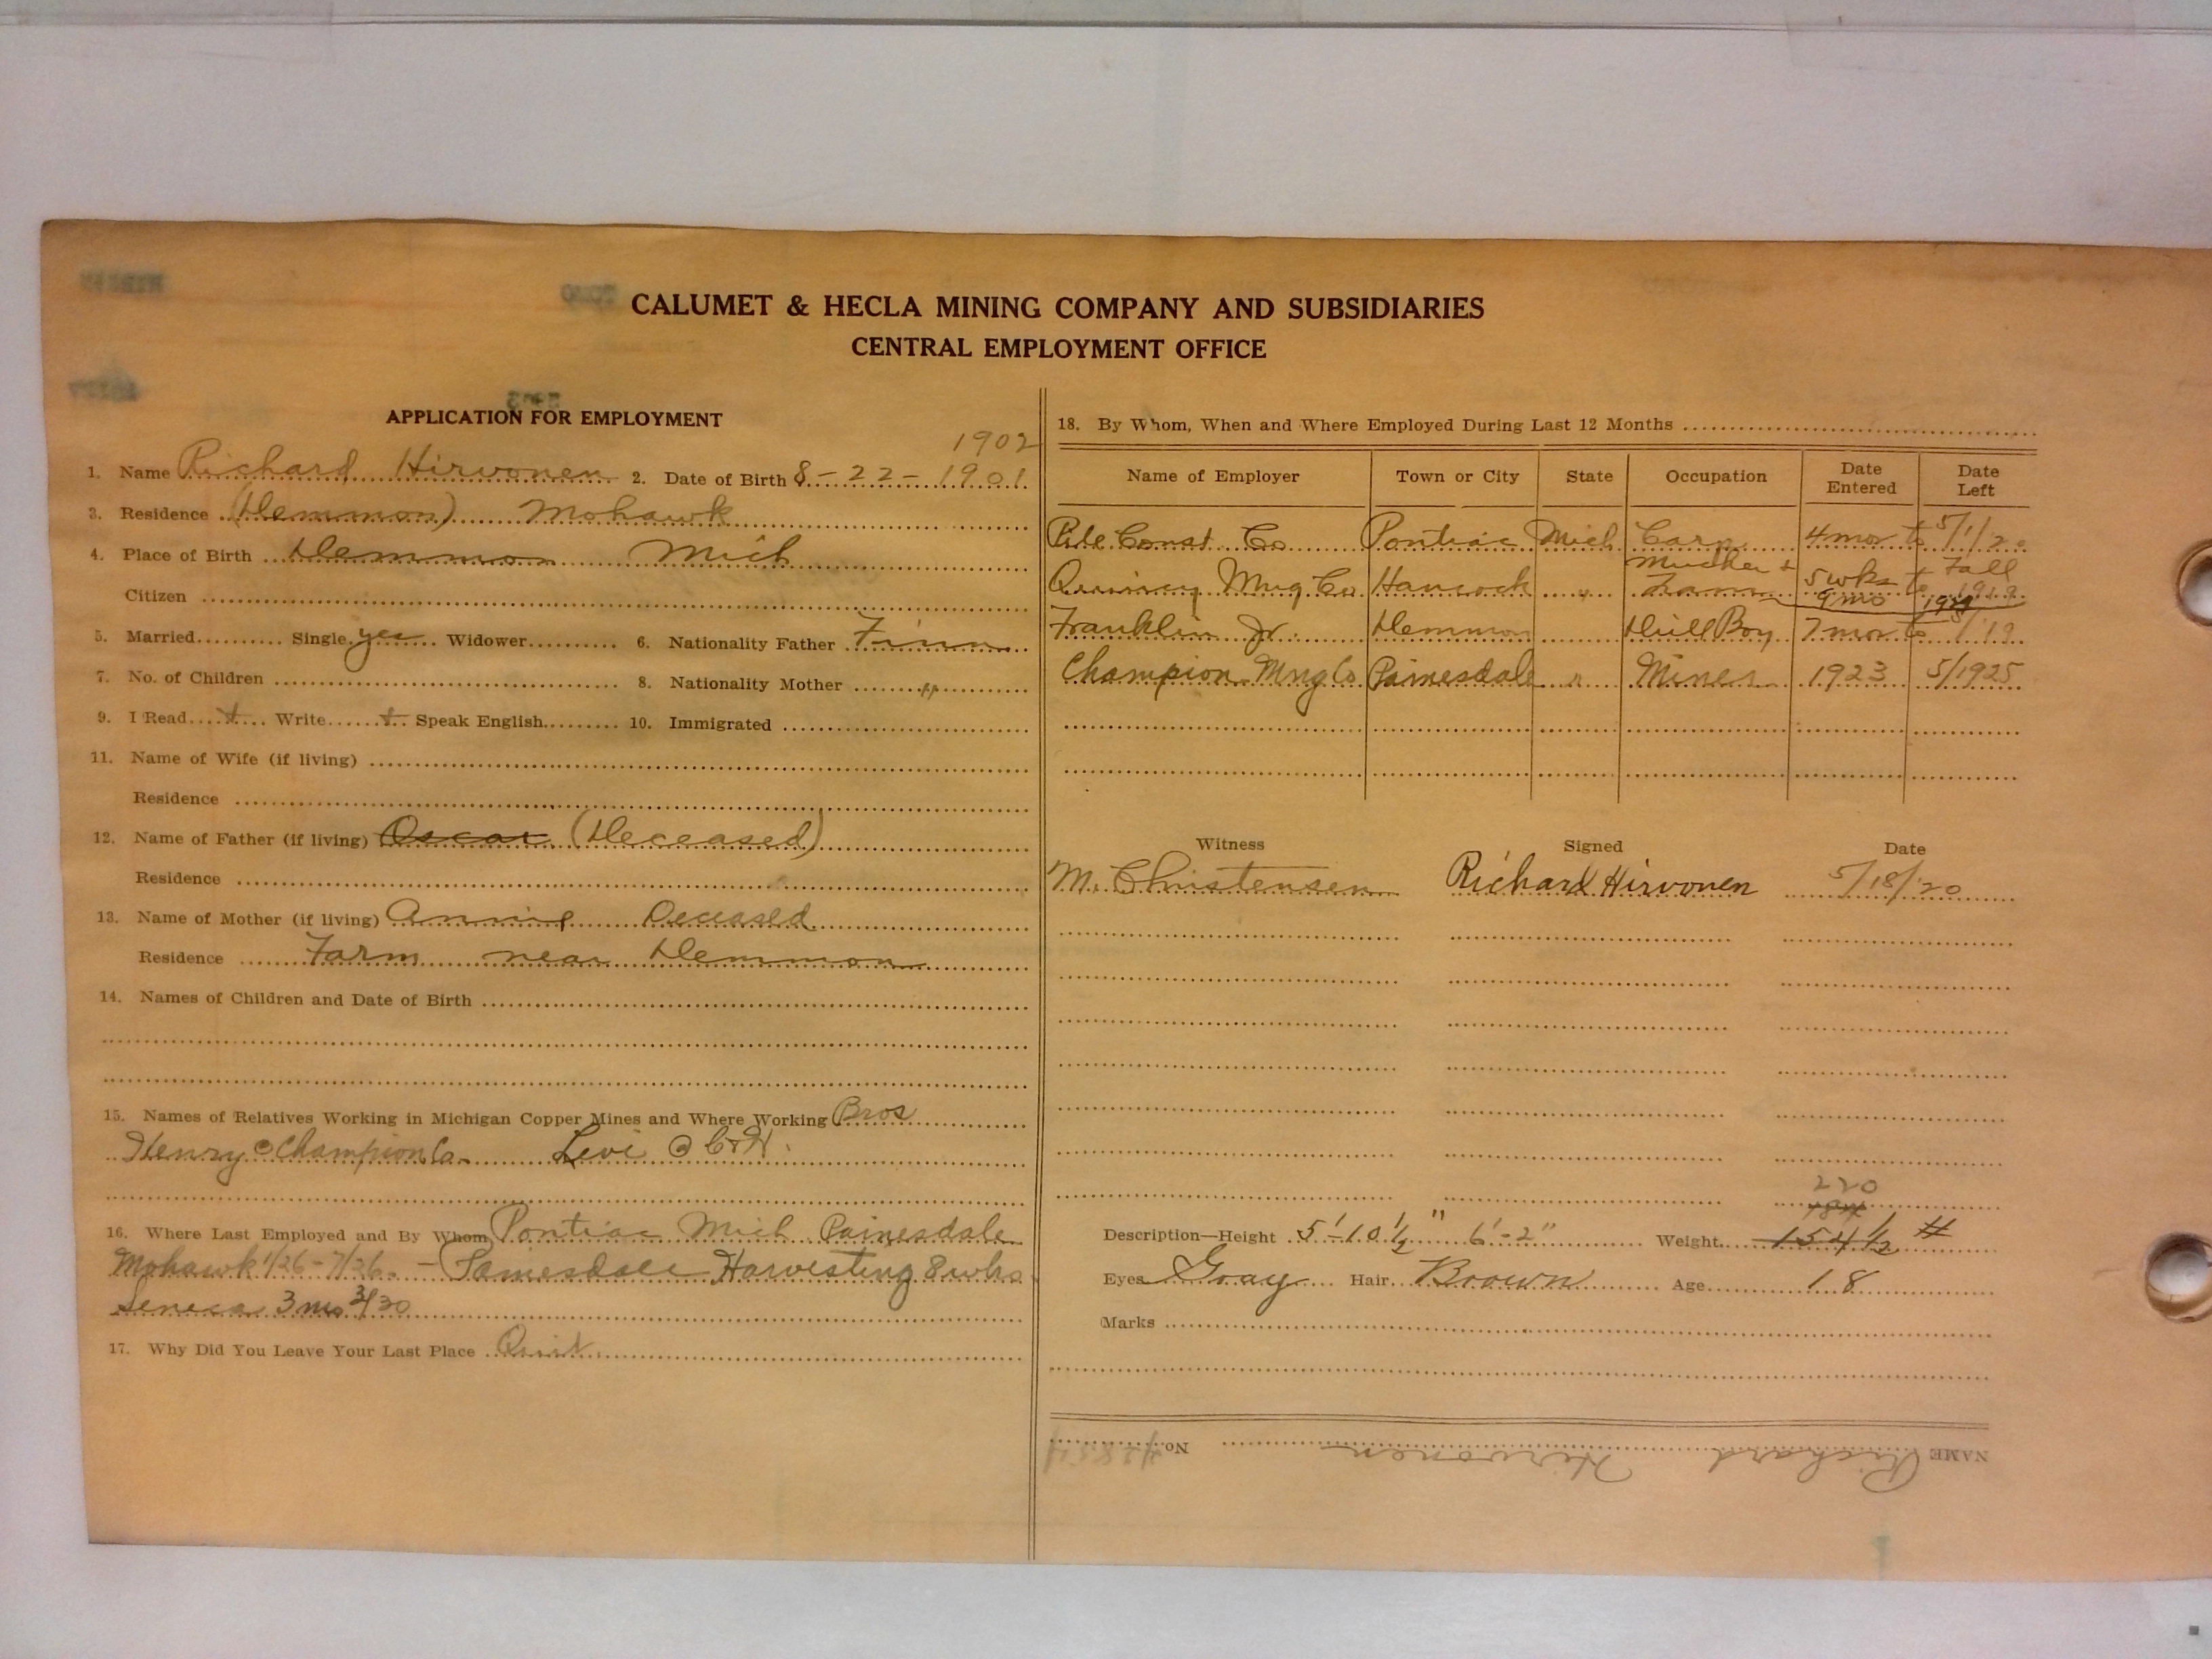 CALUMET & HECLA MINING COMPANY AND SUBSIDIARIES
CENTRAL EMPLOYMENT OFFICE
APPLICATION FOR EMPLOYMENT
1902
1. Name Richard Hirvonen 2. Date of Birth 8-22-1901
3. Residence (Demmon) Mohawk
4. Place of Birth Demmon Mich
Citizen
5. Married Single yes Widower 6. Nationality Father Finn
7. No. of Children 8. Nationality Mother "
9. I Read + Write + Speak English 10. Immigrated
11. Name of Wife (if living)
Residence
12. Name of Father (if living) Oscar (Deceased)
Residence
13. Name of Mother (if living) Annie Deceased
Residence Farm near Demmon
14. Names of Children and Date of Birth
15. Names of Relatives Working in Michigan Copper Mines and Where Working Bros
Henry @ Champion Co. Levi @ C&H
16. Where Last Employed and By Whom Pontiac Mich Painesdale
Mohawk 1/26-7/26. - Harvesting 8 wks
Seneca 3 mo 3/30
17. Why Did You Leave Your Last Place Quit
18. By Whom, When and Where Employed During Last 12 Months
Name of Employer Town or City State Occupation Date Entered Date Left
Const. Co Pontiac Mich Carp 4 mos to 5/1/20
Quincy Mng Co Hancock " Mucker & 5 wks to Fall 1922
9 mo
Franklin Jr. Demmon Drill Boy 7 mos to /19
Champion Mng Co Painesdale " Miner 1923 5/1925
Witness Signed Date
M. Christensen Richard Hirvonen 5/18/20
220
184
Description—Height 5'-10 1/2" 6'-2" Weight 154 1/2 #
Eyes Gray Hair Brown Age 18
Marks
NAME Richard Hirvonen No.